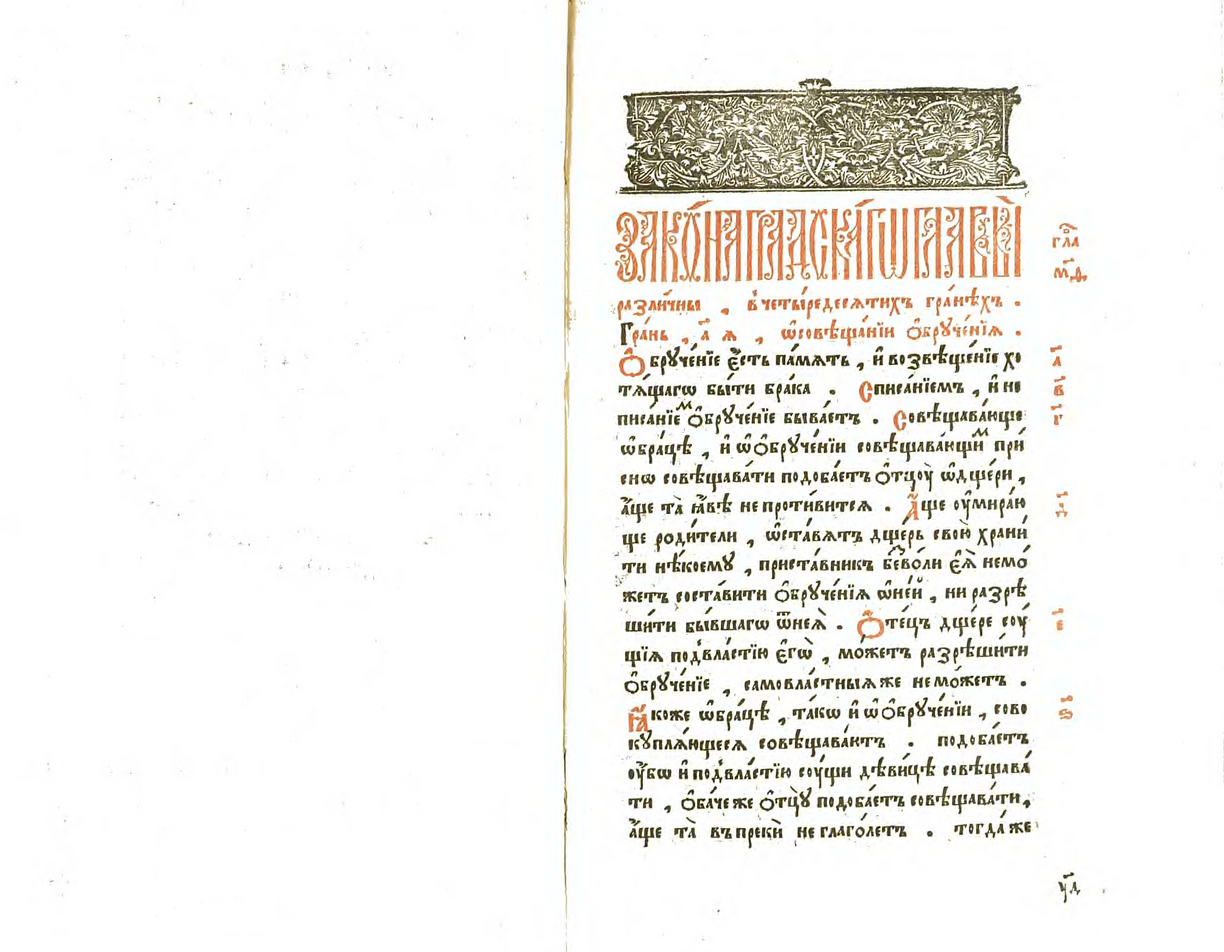 ЗАКО́НА ГРА́ДСКАГѠ ГЛАВЫ̀
гла̑
м҃д
разли́чны , в̾четы́редесѧтихъ гра́нѣхъ .
Гра́нь , а҃ ѧ , ѡ҆совѣща́нїи ѻ҆брꙋче́нїѧ .
Ѻ҆брꙋче́нїе є҆́сть па́мѧть , и҆ возвѣще́нїе хо
а҃
тѧ́щагѡ бы́ти бра́ка . Списа́нїемъ , и҆ не
в҃
писа́нїеⷨ ѻ҆брꙋче́нїе быва́етъ . Совѣщава́юще
г҃
ѡ҆бра́цѣ , и҆ ѡ҆ѻ҆брꙋче́нїи совѣщава́ющиⷨ при́
снѡ совѣщава́ти подоба́етъ ѻ҆тцоу̀ ѡ҆дще́ри ,
а҆́ще та̀ ꙗ҆́вѣ не проти́витсѧ . А҆́ще оу҆мира́ю
д҃
ще роди́тели , ѡ҆ста́вѧтъ дще́рь свою̀ храни́
ти нѣ́коемꙋ , приста́вникъ беⷥво́ли є҆ѧ̀ не мо́
жетъ соста́вити ѻ҆брꙋче́нїѧ ѡ҆не́й , ни разрѣ
ши́ти бы́вшагѡ ѿнеѧ̀ . Ѻ҆те́цъ дще́ре соу́
е҃
щїѧ под̾вла́стїю є҆гѡ̀ , мо́жетъ разрѣши́ти
ѻ҆брꙋче́нїе , самовла́стныѧ же не мо́жетъ .
Ꙗ҆́коже ѡ҆бра́цѣ , та́кѡ и҆ ѡ҆ѻ҆брꙋче́нїи , сово
ѕ҃
кꙋплѧ́ющесѧ совѣщава́ютъ . подоба́етъ
оу҆́бѡ и҆ под̾вла́стїю соу́щи дѣви́цѣ совѣщава́
ти , ѻ҆ба́че же ѻ҆тцꙋ̀ подоба́етъ совѣщава́ти ,
а҆́ще та̀ въ прекѝ не глаго́летъ . тогда́ же
у҃д